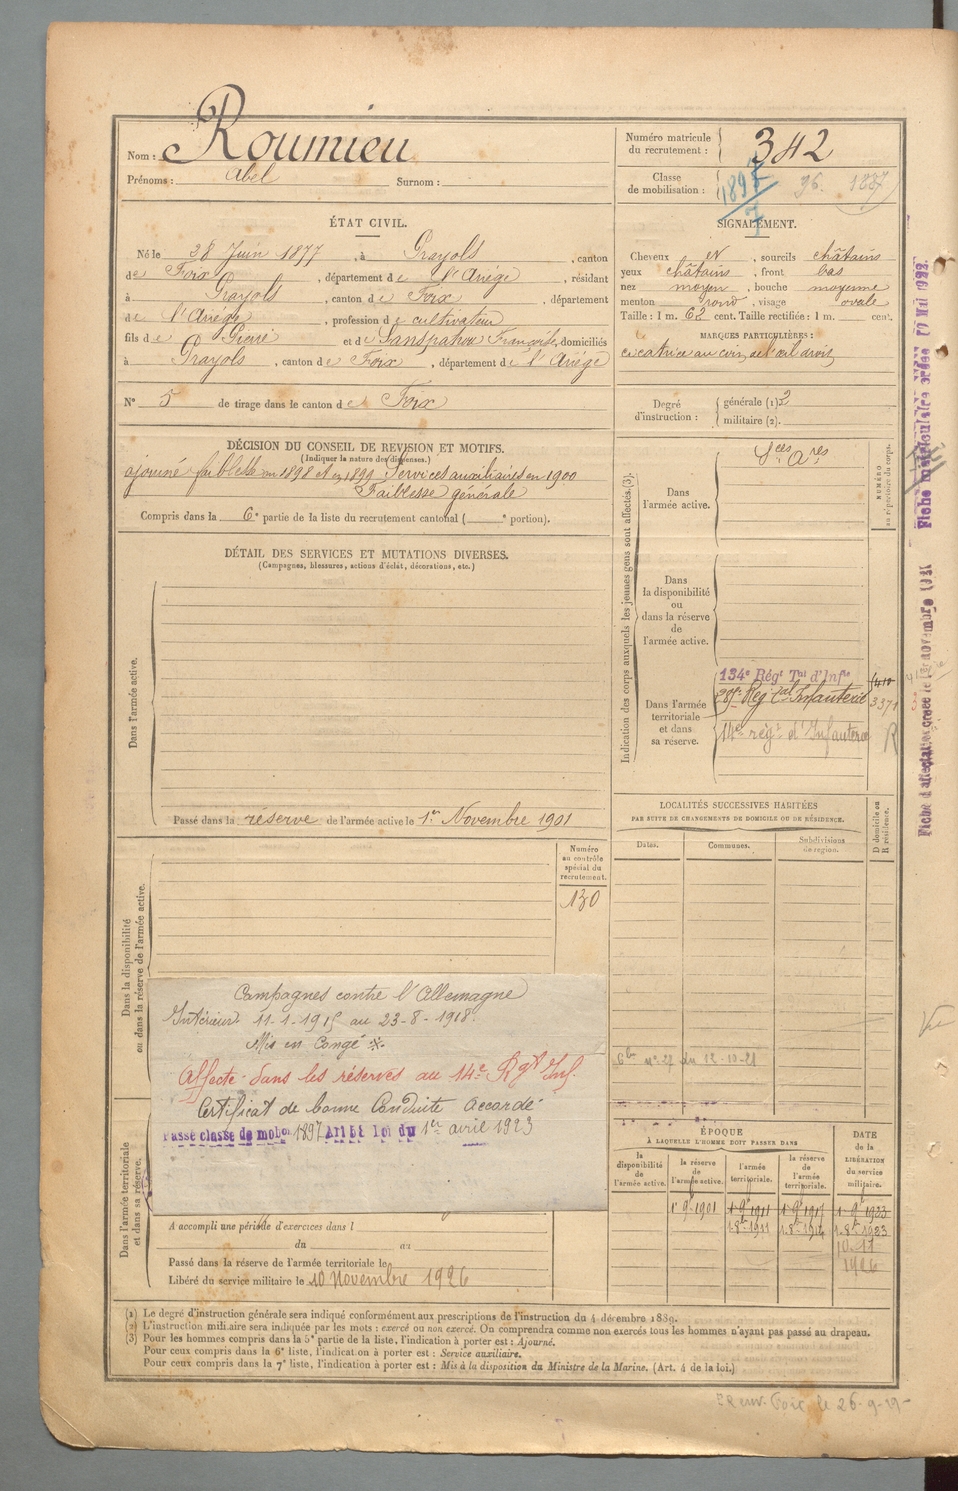 Nom : Roumieu
Prénoms : Abel Surnom :
Numéro matricule du recrutement : 342
Classe de mobilisation : 1897 96. 1887
ÉTAT CIVIL.
Né le 28 Juin 1877, à Prayols, canton
de Foix, département de l'Ariège, résidant
à Prayols, canton de Foix, département
de l'Ariège, profession de cultivateur
fils de Pierre et de Sanspahou Françoise, domiciliés
à Prayols, canton de Foix, département de l'Ariège
N° 5 de tirage dans le canton de Foix
SIGNALEMENT.
Cheveux et, sourcils châtains
yeux châtains, front bas
nez moyen, bouche moyenne
menton rond, visage ovale
Taille : 1 m. 62 cent. Taille rectifiée : 1 m. cent.
MARQUES PARTICULIÈRES :
cicatrice au coin de l'œil droit,
Degré d'instruction : générale (1) 2
militaire (2).
DÉCISION DU CONSEIL DE REVISION ET MOTIFS.
(Indiquer la nature des dispenses.)
ajourné faiblesse en 1898 et en 1899 Services auxiliaires en 1900
Faiblesse générale
Compris dans la 6e partie de la liste du recrutement cantonal ( e portion).
DÉTAIL DES SERVICES ET MUTATIONS DIVERSES.
(Campagnes, blessures, actions d'éclat, décorations, etc.)
Dans l'armée active.
Passé dans la réserve de l'armée active le 1er Novembre 1901
Indication des corps auxquels les jeunes gens sont affectés.(3)
NUMÉRO au répertoire du corps.
Dans l'armée active.
Sces Ares
Dans la disponibilité ou dans la réserve de l'armée active.
Dans l'armée territoriale et dans sa réserve.
134e Régt Tal d'Infie
Reg tal Infanterie
3371
14e régt d'Infanterie
R
LOCALITÉS SUCCESSIVES HABITÉES
PAR SUITE DE CHANGEMENTS DE DOMICILE OU DE RÉSIDENCE.
Dates. Communes. Subdivisions de région.
D domicile ou R résidence.
Dans la disponibilité ou dans la réserve de l'armée active.
Numéro au contrôle spécial du recrutement.
130
Campagnes contre l'Allemagne
Intérieur 11-1-1915 au 23-8-1918.
Mis en Congé
Affecté dans les réserves au 14e Rgt Inf.
Certificat de bonne Conduite accordé
Passé classe de mobon 1897 Art 58 loi du 1er avril 1923
n° 27 du 12-10-21
Dans l'armée territoriale et dans sa réserve.
A accompli une période d'exercices dans l
du au
Passé dans la réserve de l'armée territoriale le
Libéré du service militaire le 10 Novembre 1926
ÉPOQUE
À LAQUELLE L'HOMME DOIT PASSER DANS
la disponibilité de l'armée active.
la réserve de l'armée active.
l'armée territoriale.
la réserve de l'armée territoriale.
DATE de la LIBÉRATION du service militaire.
1 9bre 1901
10-11
1926
(1) Le degré d'instruction générale sera indiqué conformément aux prescriptions de l'instruction du 4 décembre 1889.
(2) L'instruction militaire sera indiquée par les mots : exercé ou non exercé. On comprendra comme non exercés tous les hommes n'ayant pas passé au drapeau.
(3) Pour les hommes compris dans la 5e partie de la liste, l'indication à porter est : Ajourné.
Pour ceux compris dans la 6e liste, l'indication à porter est : Service auxiliaire.
Pour ceux compris dans la 7e liste, l'indication à porter est : Mis à la disposition du Ministre de la Marine. (Art. 4 de la loi.)
Fiche matriculaire créée 17 Mai 1922.
Fiche d'affectation créée le novembre
Foix le 26-9-19